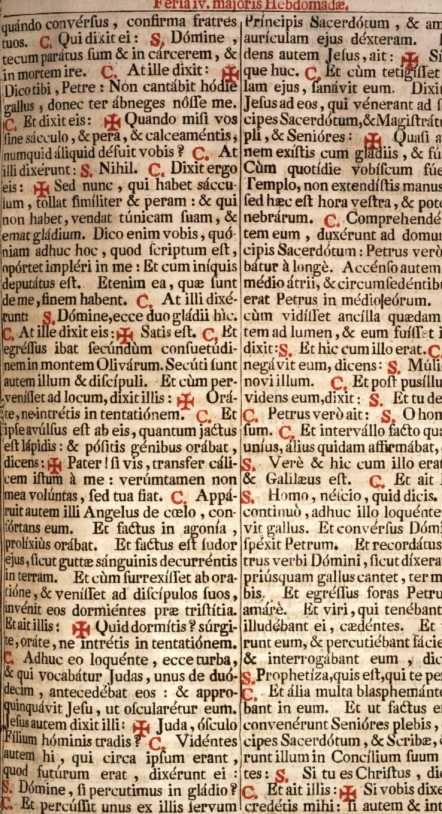 Feria iv. majoris Hebdomadæ.
quándo convérſus, confirma fratres
tuos. C. Qui dixit ei: S. Dómine,
tecum parátus ſum & in cárcerem, &
in mortem ire. C. At ille dixit: ✠
Dico tibi, Petre: Non cantábit hódie
gallus, donec ter ábneges nóſſe me.
C. Et dixit eis: ✠ Quando miſi vos
ſine sácculo, & pera, & calceaméntis,
numquid áliquid défuit vobis? C. At
illi dixérunt: S. Nihil. C. Dixit ergo
eis: ✠ Sed nunc, qui habet sáccu-
lum, tollat ſimíliter & peram: & qui
non habet, vendat túnicam ſuam, &
emat gládium. Dico enim vobis, quó-
niam adhuc hoc, quod ſcriptum eſt,
opórtet impléri in me: Et cum iníquis
deputátus eſt. Etenim ea, quæ ſunt
de me, finem habent. C. At illi dixé-
runt: S. Dómine, ecce duo gládii hìc.
C. At ille dixit eis: ✠ Satis eſt. C. Et
egréſſus ibat ſecúndùm conſuetúdi-
nem in montem Olivárum. Secúti ſunt
autem illum & diſcípuli. Et cùm per-
veníſſet ad locum, dixit illis: ✠ Orá-
te, ne intrétis in tentatiónem. C. Et
ipſe avúlſus eſt ab eis, quantum jactus
eſt lápidis: & pósitis génibus orábat,
dicens: ✠ Pater! ſi vis, transfer cáli-
cem iſtum à me: verúmtamen non
mea volúntas, ſed tua fiat. C. Appá-
ruit autem illi Angelus de cœlo, con-
fórtans eum. Et factus in agonía,
prolíxiùs orábat. Et factus eſt ſudor
ejus, ſicut guttæ sánguinis decurréntis
in terram. Et cùm ſurrexíſſet ab ora-
tióne, & veníſſet ad diſcípulos ſuos,
invénit eos dormiéntes præ triſtítia.
Et ait illis: ✠ Quid dormítis? súrgi-
te, oráte, ne intrétis in tentatiónem.
C. Adhuc eo loquénte, ecce turba,
& qui vocabátur Judas, unus de duó-
decim, antecedébat eos: & appro-
pinquávit Jeſu, ut oſcularétur eum.
Jeſus autem dixit illi: ✠ Juda, óſculo
Fílium hóminis tradis? C. Vidéntes
autem hi, qui circa ipſum erant,
quod futúrum erat, dixérunt ei:
S. Dómine, ſi percutimus in gládio?
C. Et percúſſit unus ex illis ſervum
Príncipis Sacerdótum, & am
aurículam ejus déxteram.
dens autem Jeſus, ait: ✠ Si
que huc. C. Et cùm tetigíſſet
lam ejus, ſanávit eum. Dixi
Jeſus ad eos, qui vénerant ad ſ
cipes Sacerdótum, & Magiſtrátu
pli, & Senióres: ✠ Quaſi a
nem exíſtis cum gládiis, & fú
Cùm quotídie vobíſcum fúe
Templo, non extendíſtis manus
ſed hæc eſt hora veſtra, & pote
nebrárum. C. Comprehendé
tem eum, duxérunt ad domum
cipis Sacerdótum: Petrus verò
bátur à longè. Accénſo autem
médio átrii, & circumſedéntibu
erat Petrus in médio eórum.
cùm vidíſſet ancílla quædam
tem ad lumen, & eum fuíſſet i
dixit: S. Et hic cum illo erat. C.
negávit eum, dicens: S. Múli
novi illum. C. Et poſt puſíllu
videns eum, dixit: S. Et tu de
C. Petrus verò ait: S. O hom
ſum. C. Et intervállo facto qua
uníus, álius quidam affirmábat,
S. Verè & hic cum illo erat
& Galilæus eſt. C. Et ait
S. Homo, néſcio, quid dicis.
contínuò, adhuc illo loquénte
vit gallus. Et convérſus Dómi
ſpéxit Petrum. Et recordátus
trus verbi Dómini, ſicut díxera
priúsquam gallus cantet, ter m
bis. Et egréſſus foras Petru
amárè. Et viri, qui tenébant
illudébant ei, cædéntes. Et
runt eum, & percutiébant fácie
& interrogábant eum, dic
S. Prophetíza, quis eſt, qui te pe
C. Et ália multa blaſphemánte
bant in eum. Et ut factus e
convenérunt Senióres plebis,
cipes Sacerdótum, & Scribæ,
runt illum in Concílium ſuum
tes: S. Si tu es Chriſtus, di
C. Et ait illis: ✠ Si vobis dixe
credétis mihi: ſi autem & int